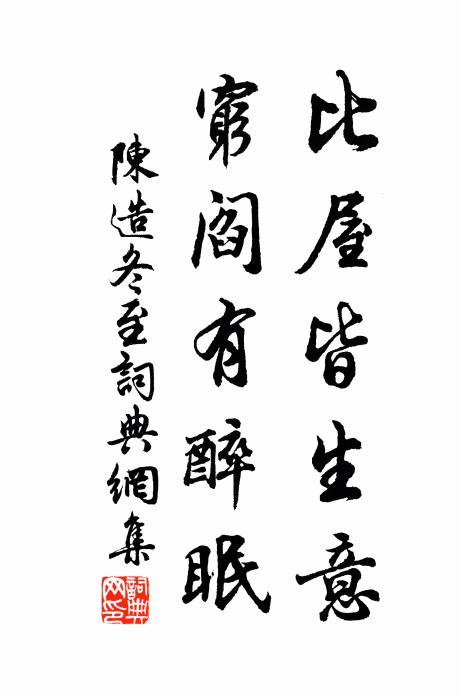 比屋皆生意
窮閻有醉眠
陳造冬至詞典網集